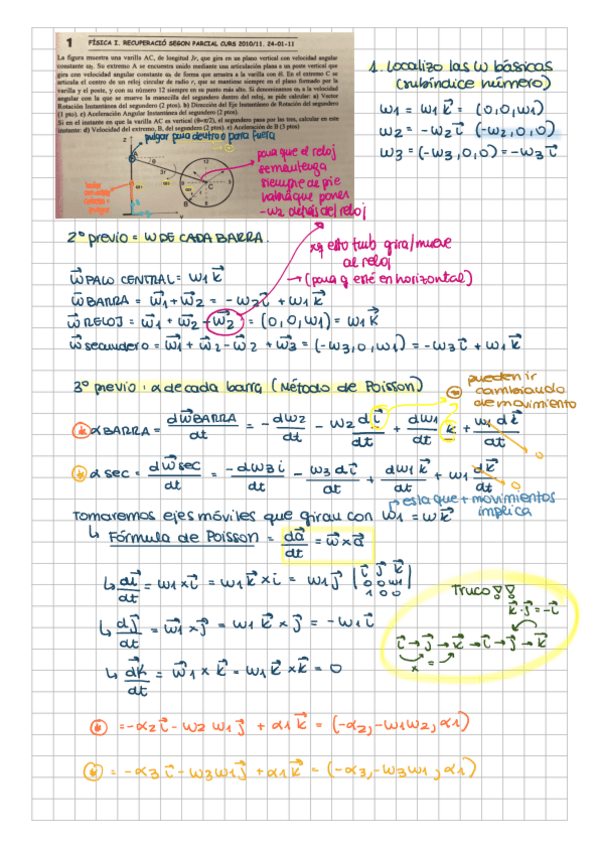 1 FÍSICA I. RECUPERACIÓ SEGON PARCIAL CURS 2010/11. 24-01-11
La figura muestra una varilla AC, de longitud 3r, que gira en un plano vertical con velocidad angular
constante ω₂. Su extremo A se encuentra unido mediante una articulación plana a un poste vertical que
gira con velocidad angular constante ω₁ de forma que arrastra a la varilla con él. En el extremo C se
articula el centro de un reloj circular de radio r, que se mantiene siempre en el plano formado por la
varilla y el poste, y con su número 12 siempre en su punto más alto. Si denominamos ω₃ a la velocidad
angular con la que se mueve la manecilla del segundero dentro del reloj, se pide calcular: a) Vector
Rotación Instantánea del segundero (2 ptos). b) Dirección del Eje Instantáneo de Rotación del segundero
(1 pto). c) Aceleración Angular Instantánea del segundero (2 ptos).
Si en el instante en que la varilla AC es vertical (θ=π/2), el segundero pasa por las tres, calcular en este
instante: d) Velocidad del extremo, B, del segundero (2 ptos). e) Aceleración de B (3 ptos)
pulgar para dentro o para fuera
para que el reloj
se mantenga
siempre de pie
vamos a que poner
-ω2 detrás del reloj
A
3r
12
C
B
1. Localizo las ω básicas
(subíndice número)
ω1 = ω1 k⃗ = (0,0,ω1)
ω2 = -ω2 i⃗ (-ω2,0,0)
ω3 = (-ω3,0,0) = -ω3 i⃗
2º previo = ω DE CADA BARRA.
xq esto tmb gira/mueve
al reloj
→ (para q esté en horizontal)
ω⃗ PALO CENTRAL = ω1 k⃗
ω⃗ BARRA = ω⃗1 + ω⃗2 = -ω2 i⃗ + ω1 k⃗
ω⃗ RELOJ = ω⃗1 + ω⃗2 - ω⃗2 = (0,0,ω1) = ω1 k⃗
ω⃗ segundero = ω⃗1 + ω⃗2 - ω⃗2 + ω⃗3 = (-ω3,0,ω1) = -ω3 i⃗ + ω1 k⃗
3º previo: α de cada barra (Método de Poisson)
pueden ir
cambiando
de movimiento
α BARRA = dω⃗BARRA/dt = -dω2/dt - ω2 di⃗/dt + dω1/dt k⃗ + ω1 dk⃗/dt 0
α sec = dω⃗sec/dt = -dω3 i/dt - ω3 di⃗/dt + dω1 k⃗/dt + ω1 dk⃗/dt 0
Tomaremos ejes móviles que giran con ω⃗1 = ωk⃗
es la que + movimientos
implica
↳ Fórmula de Poisson = da⃗/dt = ω⃗ × a⃗
↳ di⃗/dt = ω1 × i⃗ = ω1 k⃗ × i = ω1 j⃗ | i⃗ j⃗ k⃗ / 0 0 ω1 / 1 0 0 |
Truco!!
k⃗ · j⃗ = -i⃗
i⃗ → j⃗ → k⃗ → i⃗ → j⃗ → k⃗
× =
↳ dj⃗/dt = ω⃗1 × j⃗ = ω1 k⃗ × j⃗ = -ω1 i⃗
↳ dk⃗/dt = ω⃗1 × k⃗ = ω1 k⃗ × k⃗ = 0
= -α2 i⃗ - ω2 ω1 j⃗ + α1 k⃗ = (-α2, -ω1ω2, α1)
= -α3 i⃗ - ω3ω1 j⃗ + α1 k⃗ = (-α3, -ω3ω1, α1)